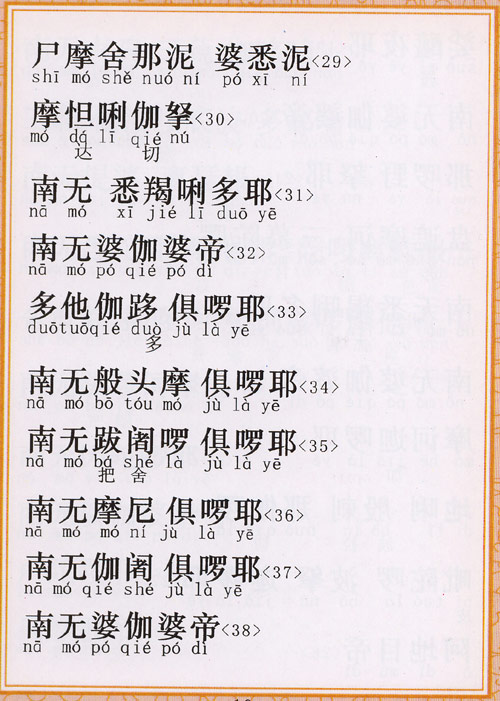 尸摩舍那泥 婆悉泥<29>
shī mó shě nuó ní pó xī ní
摩怛唎伽拏<30>
mó dá lī qié nú
达 切
南无 悉羯唎多耶<31>
nā mó xī jié lī duō yē
南无婆伽婆帝<32>
nā mó pó qié pó dì
多他伽跢 俱啰耶<33>
duō tuō qié duò jù là yē
多
南无般头摩 俱啰耶<34>
nā mó bō tóu mó jù là yē
南无跋阇啰 俱啰耶<35>
nā mó bá shé là jù là yē
把 舍
南无摩尼 俱啰耶<36>
nā mó mó ní jù là yē
南无伽阇 俱啰耶<37>
nā mó qié shé jù là yē
南无婆伽婆帝<38>
nā mó pó qié pó dì